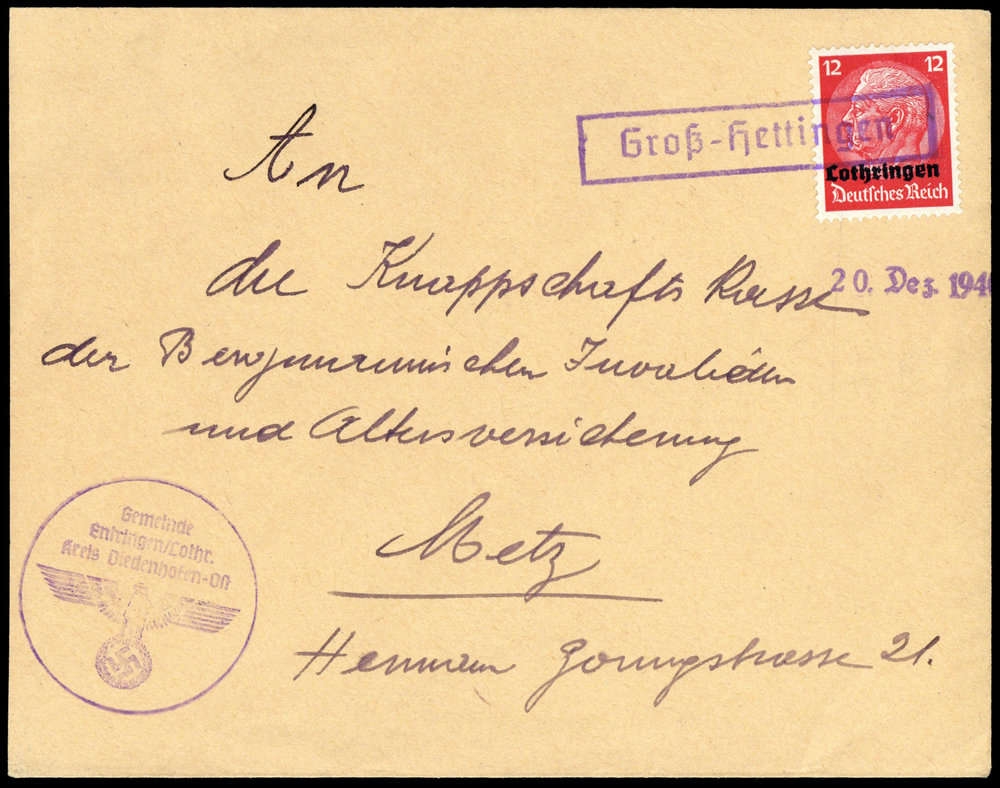 12 12
Groß-Hettingen
Lothringen
Deutsches Reich
20. Dez. 194
An
die Knappschafts Kasse
der Bergmannischen Invaliden
und Altersversicherung
Metz
Hermann Goringstrasse 21.
Gemeinde
Entringen/Lothr.
Kreis Diedenhofen-Ost